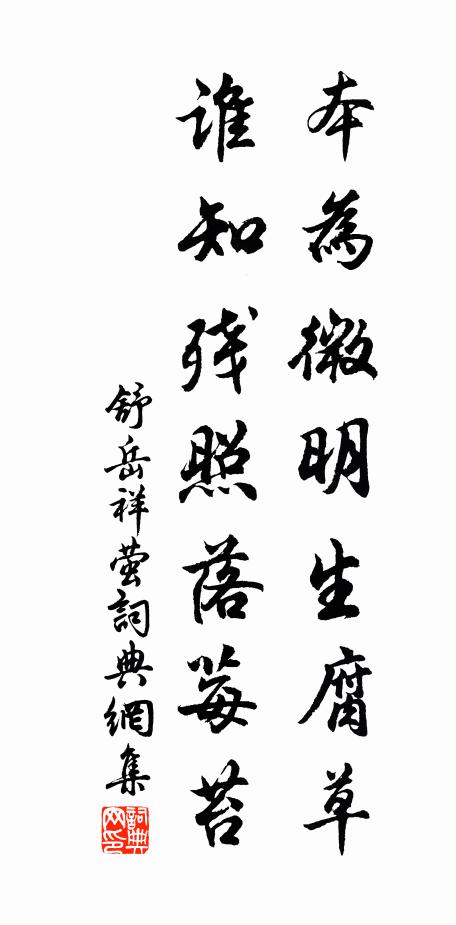 本為微明生腐草
誰知残照落莓苔
舒岳祥萤詞典網集
詞典网印